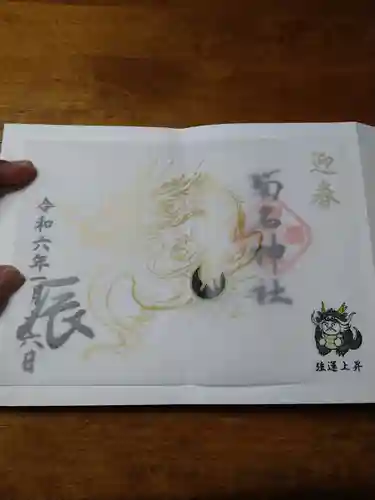 迎春
菊名神社
辰
令和六年一月六日
強運上昇